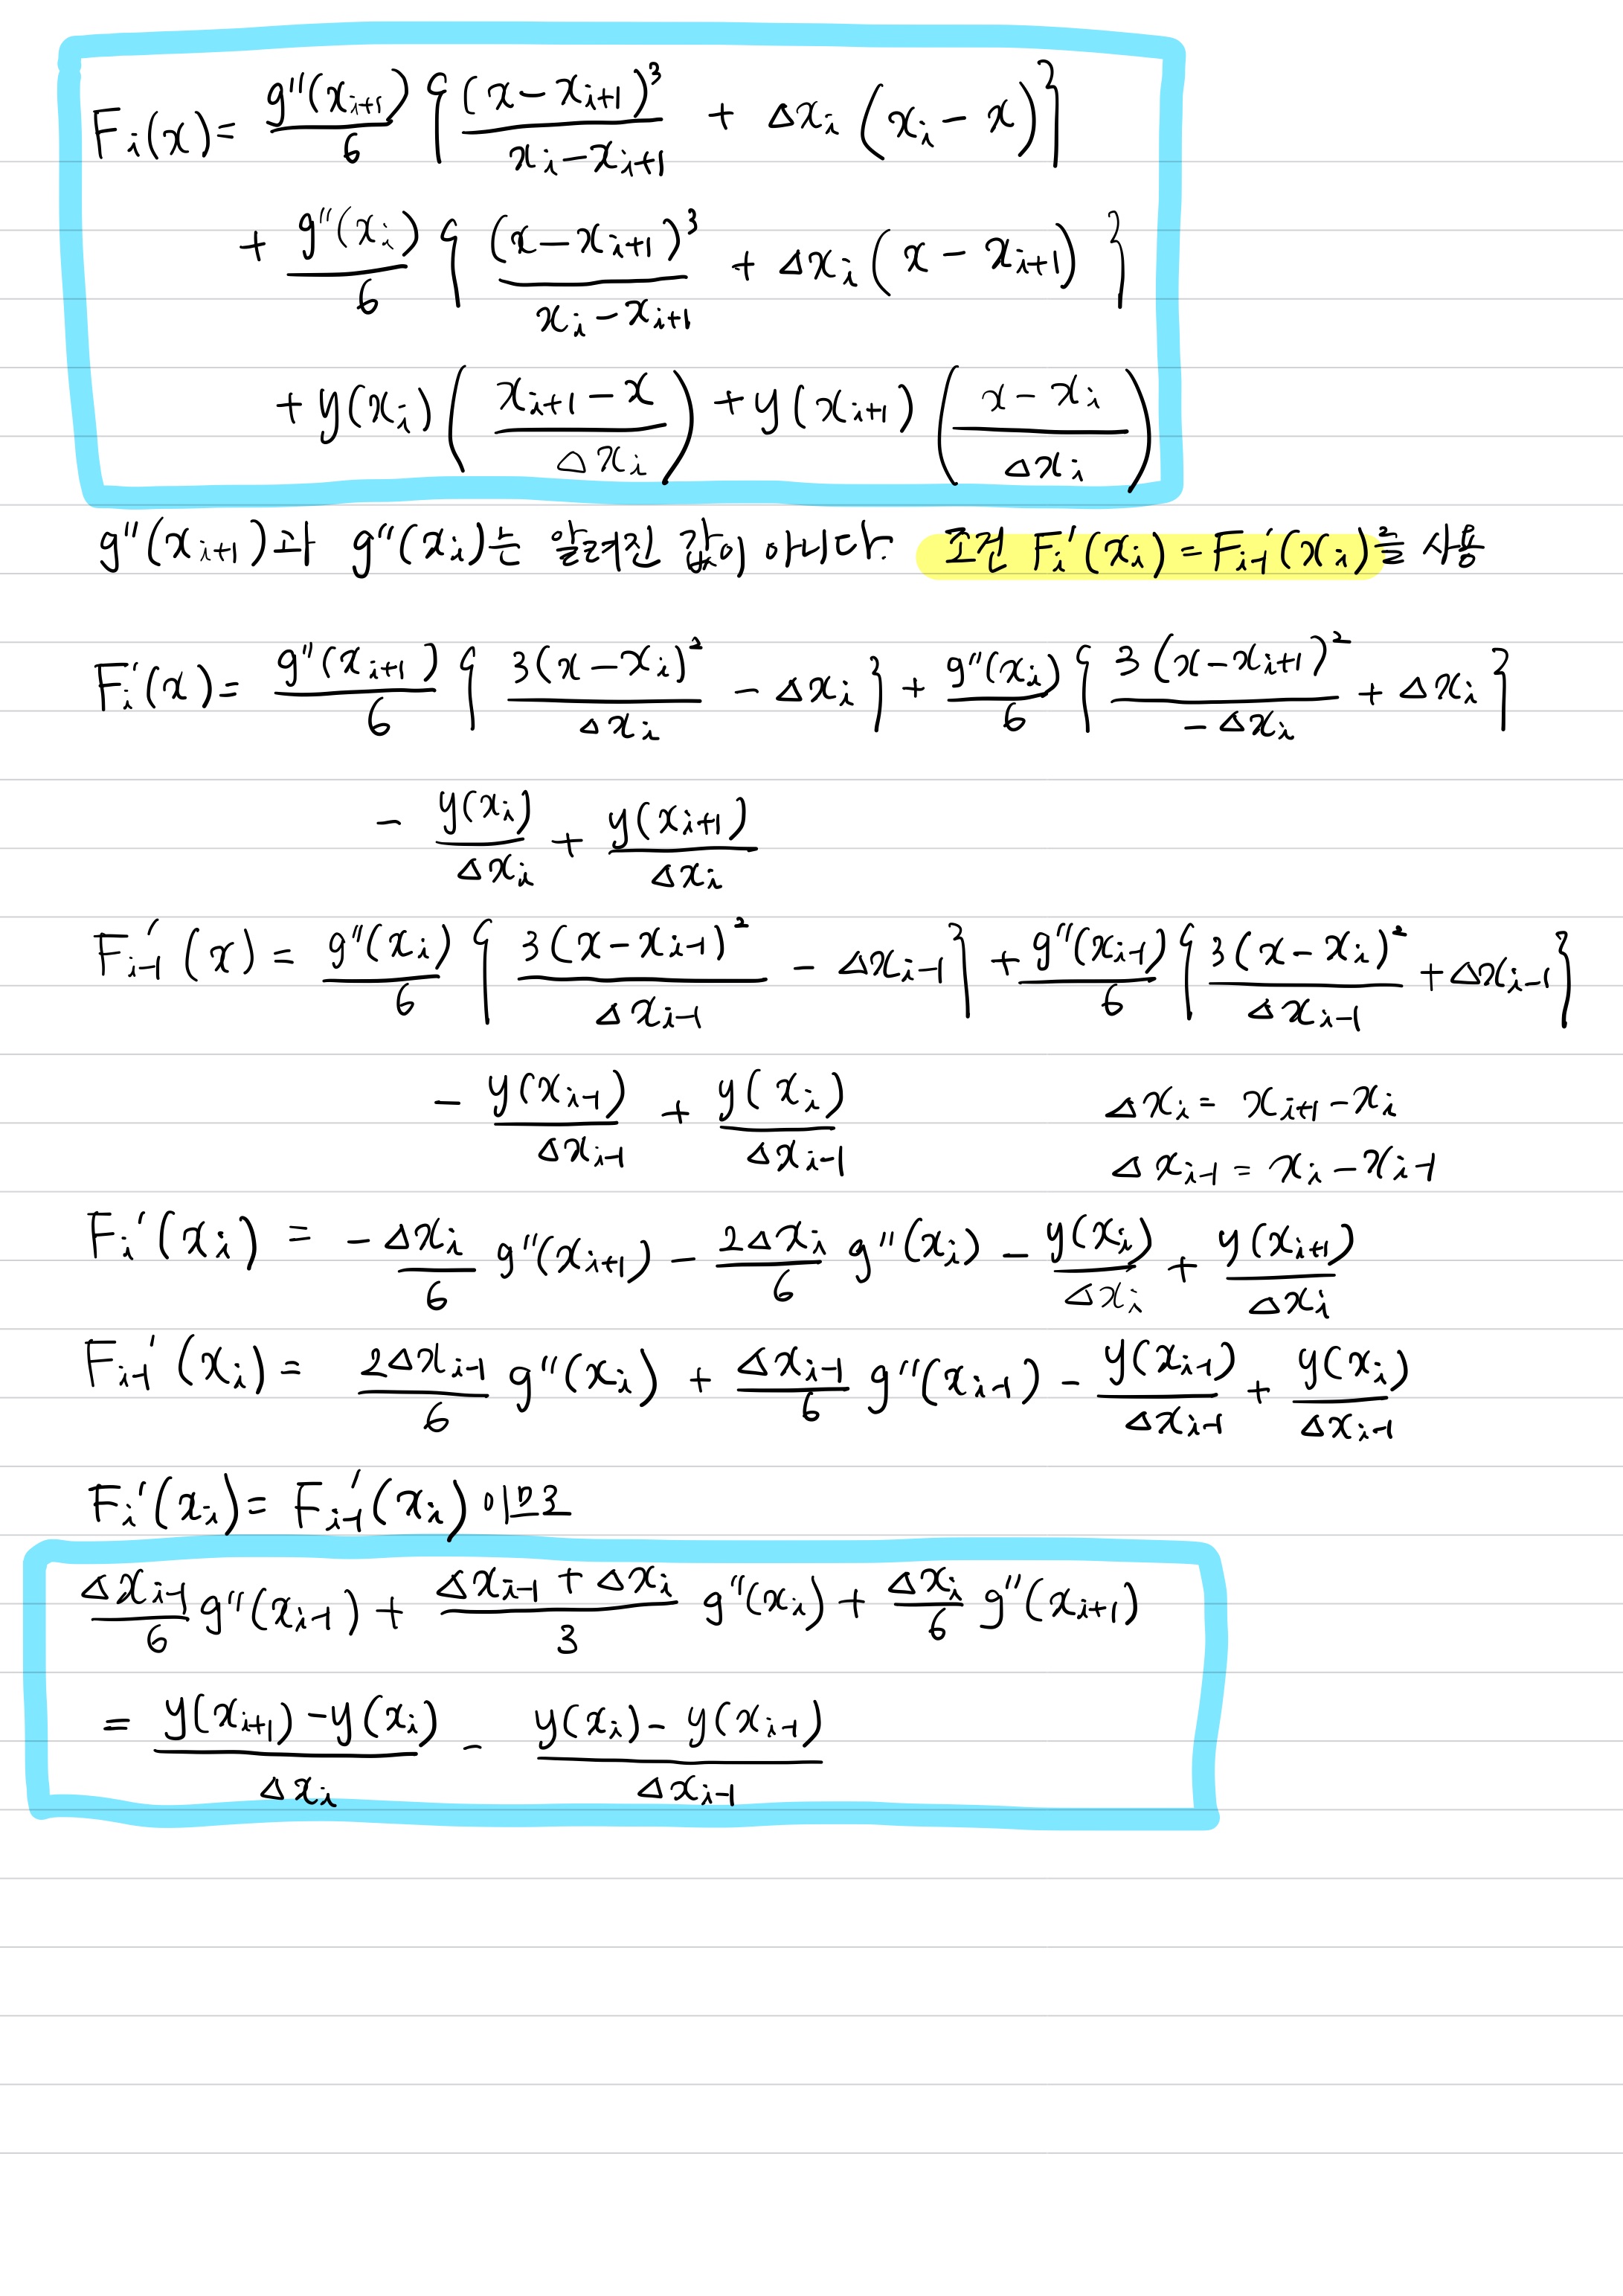 Fᵢ(x) = g''(xᵢ₊₁)/6 { (x − xᵢ₊₁)³/(xᵢ − xᵢ₊₁) + Δxᵢ (xᵢ − x) }
+ g''(xᵢ)/6 { (x − xᵢ₊₁)³/(xᵢ − xᵢ₊₁) + Δxᵢ (x − xᵢ₊₁) }
+ y(xᵢ) ( (xᵢ₊₁ − x)/Δxᵢ ) + y(xᵢ₊₁) ( (x − xᵢ)/Δxᵢ )
g''(xᵢ₊₁)과 g''(xᵢ)는 알려진 값이 아니다. 조건 Fᵢ'(xᵢ) = Fᵢ₋₁'(xᵢ)를 사용
Fᵢ'(x) = g''(xᵢ₊₁)/6 { 3(x − xᵢ)²/Δxᵢ − Δxᵢ } + g''(xᵢ)/6 { 3(x − xᵢ₊₁)²/−Δxᵢ + Δxᵢ }
− y(xᵢ)/Δxᵢ + y(xᵢ₊₁)/Δxᵢ
Fᵢ₋₁'(x) = g''(xᵢ)/6 { 3(x − xᵢ₋₁)²/Δxᵢ₋₁ − Δxᵢ₋₁ } + g''(xᵢ₋₁)/6 { 3(x − xᵢ)²/Δxᵢ₋₁ + Δxᵢ₋₁ }
− y(xᵢ₋₁)/Δxᵢ₋₁ + y(xᵢ)/Δxᵢ₋₁
Δxᵢ = xᵢ₊₁ − xᵢ
Δxᵢ₋₁ = xᵢ − xᵢ₋₁
Fᵢ'(xᵢ) = −Δxᵢ/6 g''(xᵢ₊₁) − 2Δxᵢ/6 g''(xᵢ) − y(xᵢ)/Δxᵢ + y(xᵢ₊₁)/Δxᵢ
Fᵢ₋₁'(xᵢ) = 2Δxᵢ₋₁/6 g''(xᵢ) + Δxᵢ₋₁/6 g''(xᵢ₋₁) − y(xᵢ₋₁)/Δxᵢ₋₁ + y(xᵢ)/Δxᵢ₋₁
Fᵢ'(xᵢ) = Fᵢ₋₁'(xᵢ) 이므로
Δxᵢ₋₁/6 g''(xᵢ₋₁) + (Δxᵢ₋₁ + Δxᵢ)/3 g''(xᵢ) + Δxᵢ/6 g''(xᵢ₊₁)
= (y(xᵢ₊₁) − y(xᵢ))/Δxᵢ − (y(xᵢ) − y(xᵢ₋₁))/Δxᵢ₋₁